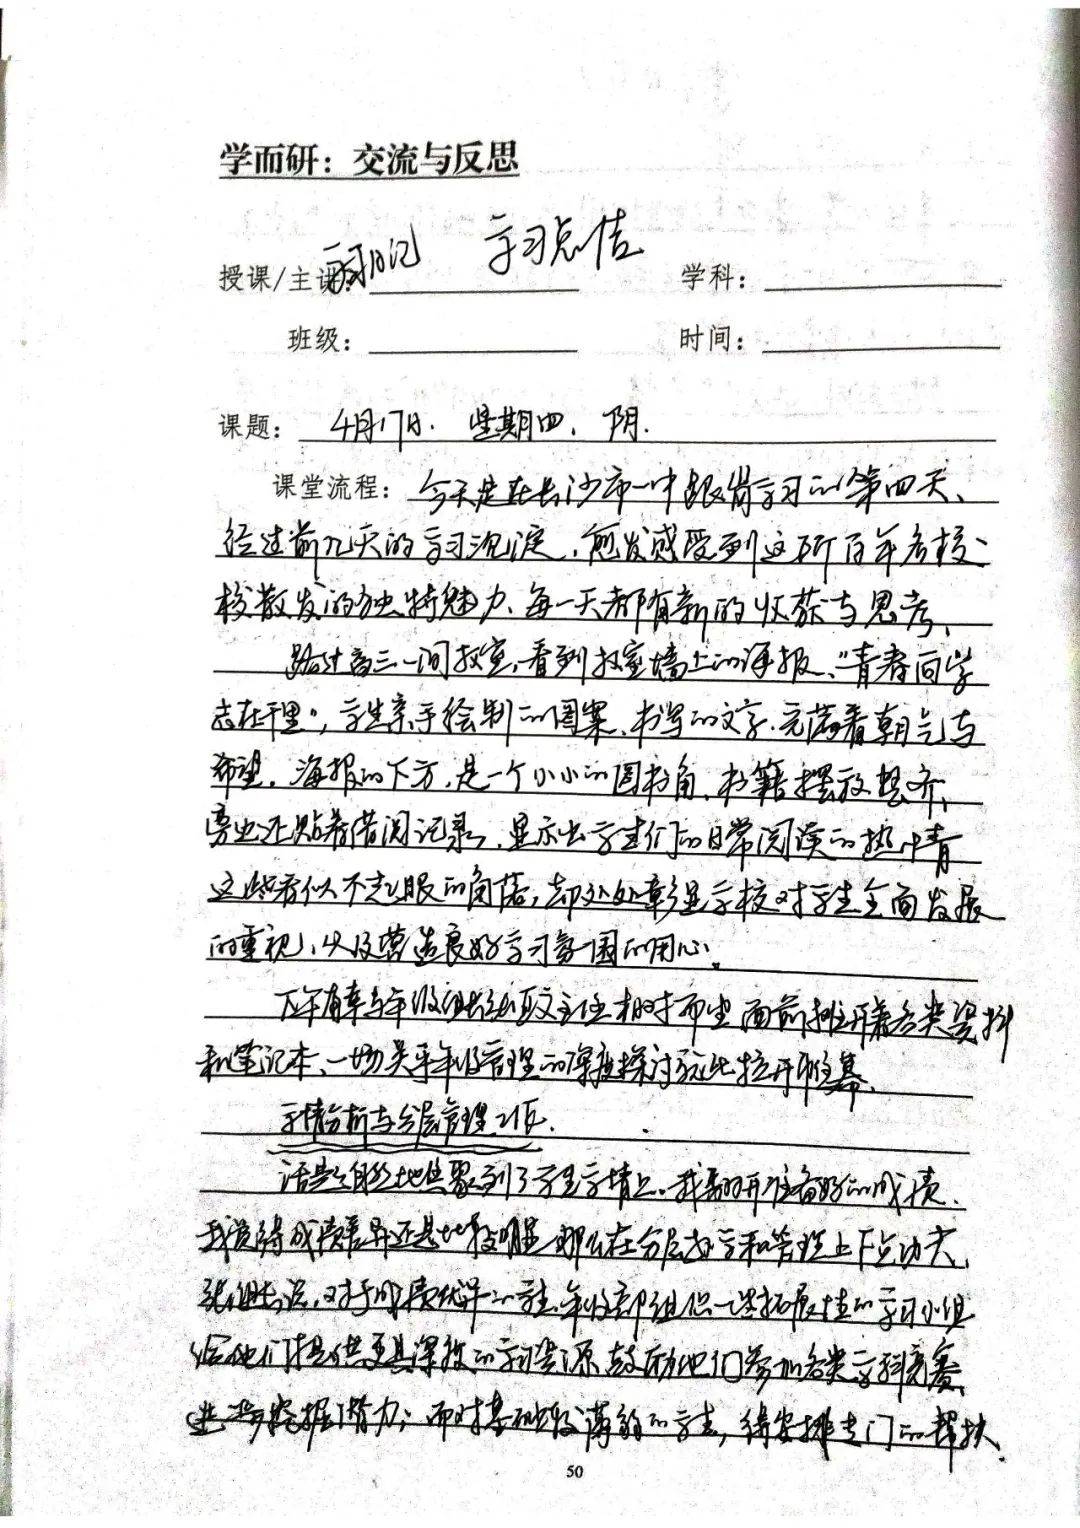 学而研：交流与反思
学习日记 学习总结
授课/主讲： 学科：
班级： 时间：
课题： 4月17日. 星期四. 阴.
课堂流程： 今天是在长沙市一中跟岗学习的第四天、
经过前几天的学习沉淀，愈发感受到这所百年名校
校散发的独特魅力、每一天都有新的收获与思考、
路过高三一间教室，看到教室墙上的海报、“青春向学
志在千里”，学生亲手绘制的图案、书写的文字、充满着朝气与
希望。海报的下方，是一个小小的图书角、书籍摆放整齐、
旁边还贴着借阅记录，显示出学生们的日常阅读的热情
这些看似不起眼的角落，却处处彰显学校对学生全面发展
的重视，以及营造良好学习氛围的用心。
下午有幸与年级组长 主任相对而坐 面前摊开着各类资料
和笔记本、一场关乎年级管理的深度探讨就此拉开帷幕、
学情分析与分层管理
话题自然地共聚到了学生学情上、我翻开准备好的成绩、
我觉得成绩差异还是比较明显 那么在分层教学和管理上下点功夫
张组长说，对于成绩优异的学生、年级部组织一些拓展性的学习小组
给他们提供更具深度的学习资源 鼓励他们参加各类学科竞赛、
进一步挖掘潜力；而对基础较薄弱的学生，得安排专门的帮扶、
50